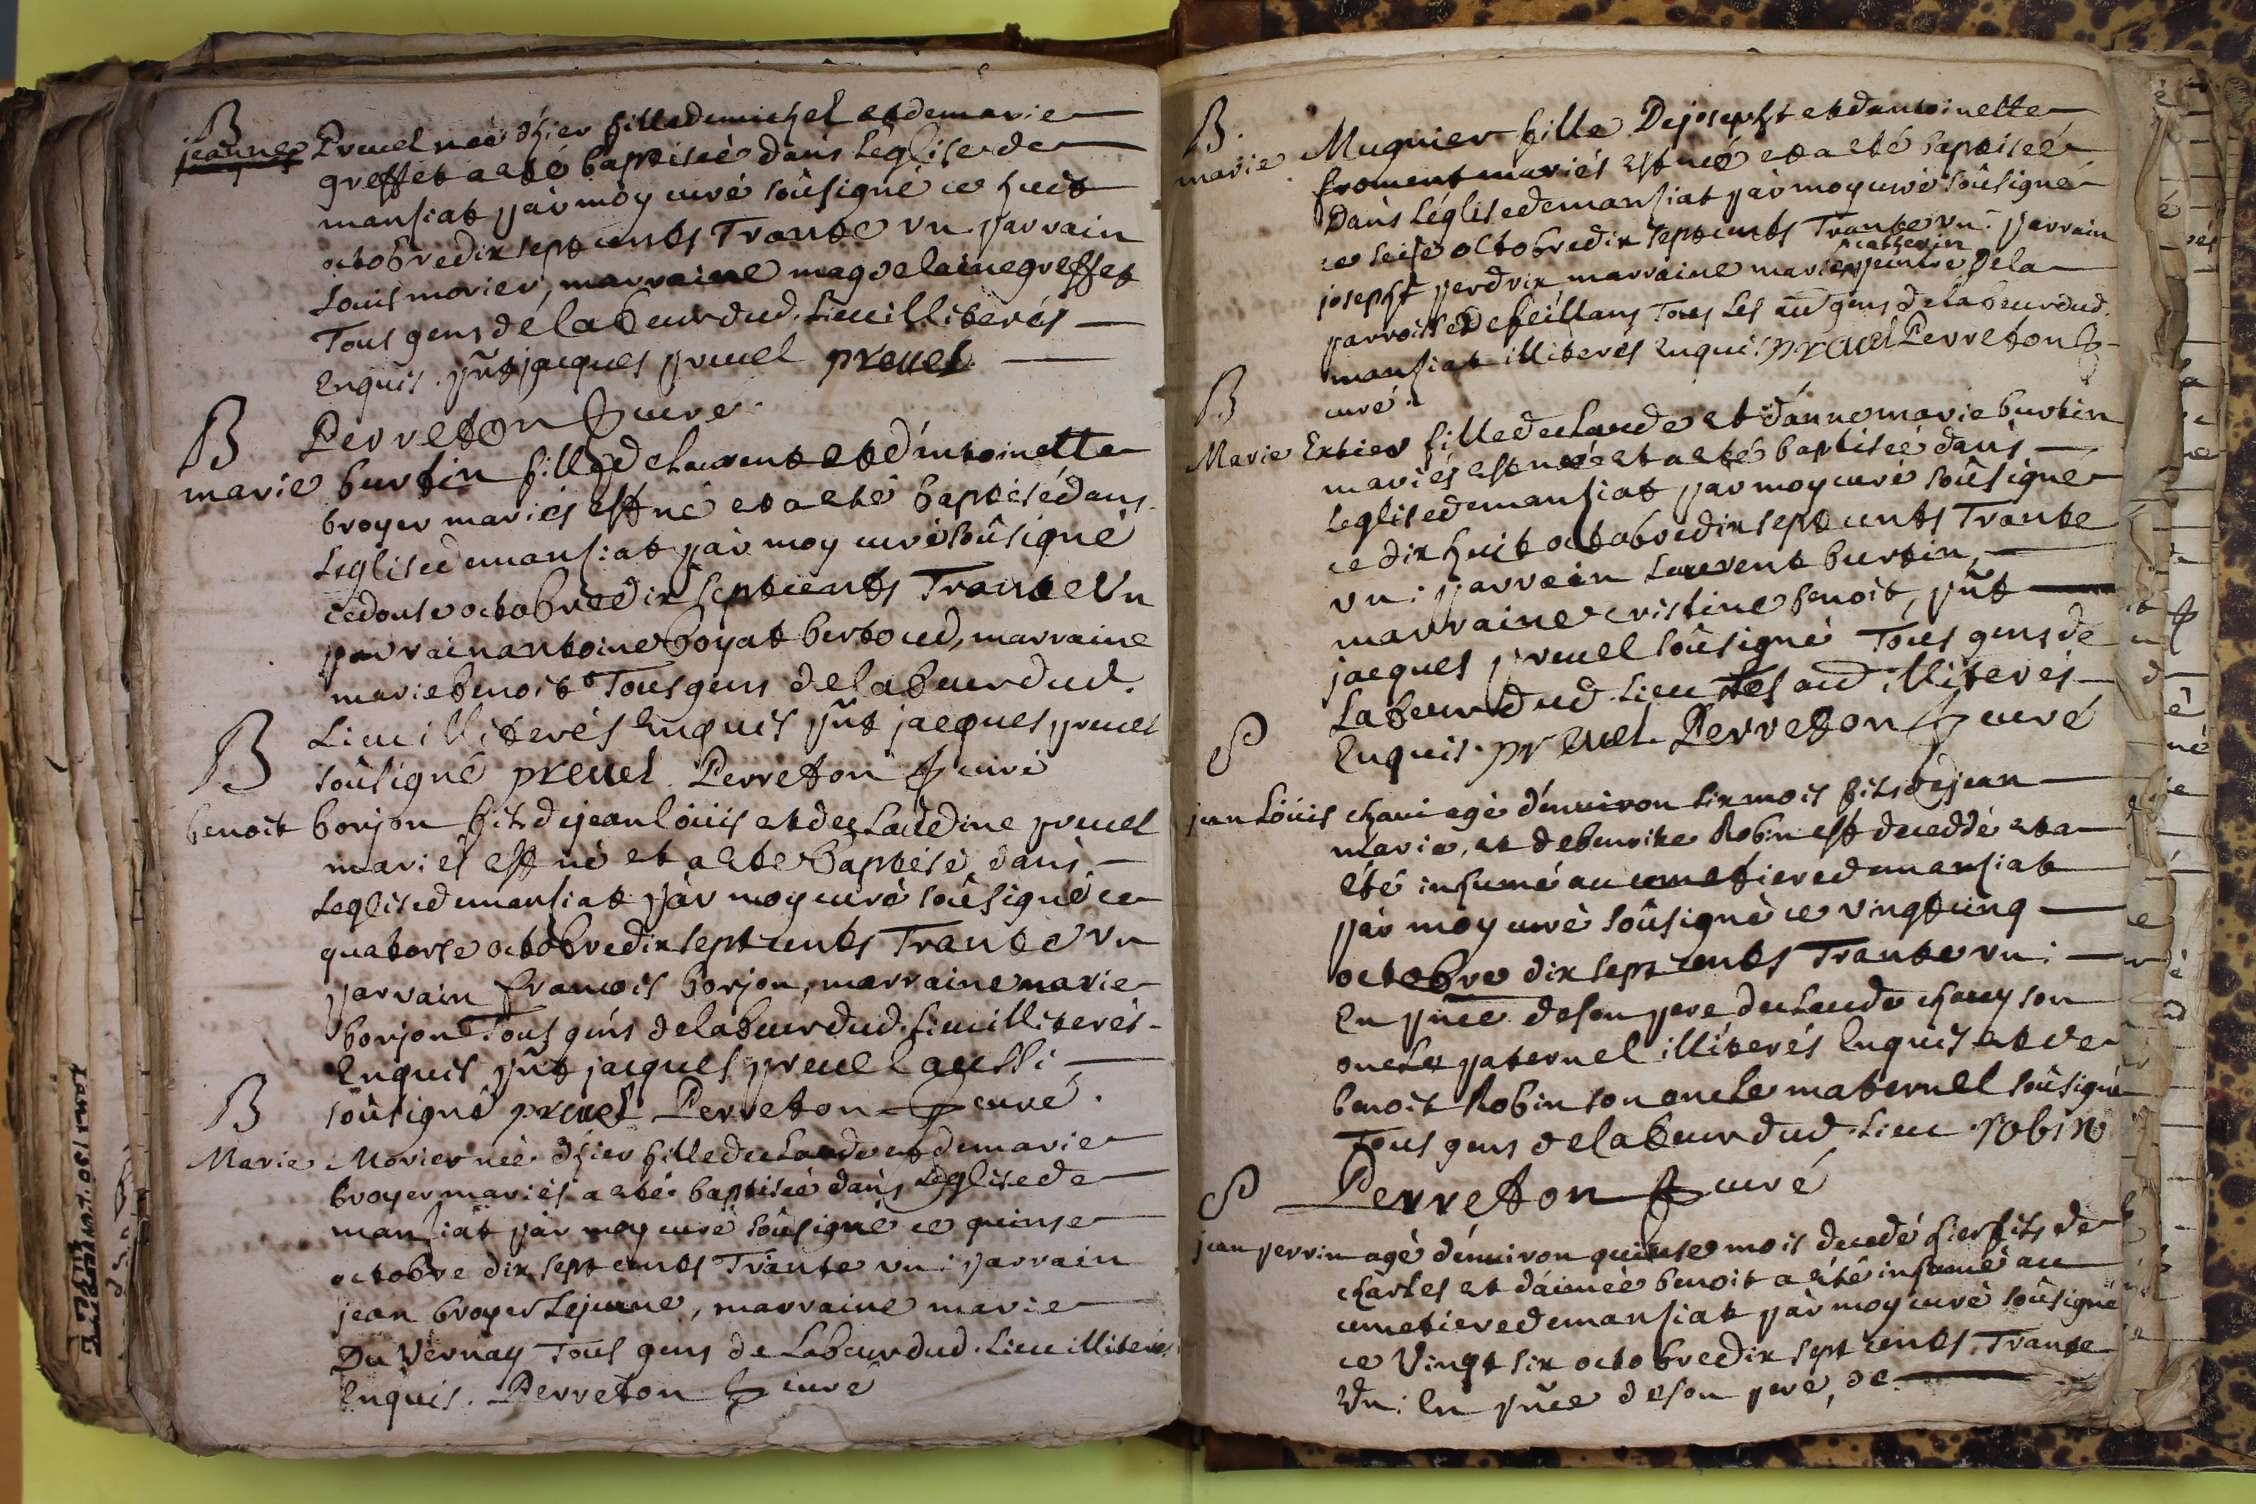 B
jeanne Preuel neé d'hier fille de michel et de marie
greffet a eté baptiseé dans Léglise de
mansiat pàr moy curé soûsigné ce huit
octobre dix sept cents Trante vn parrain
Louis morier, marraine magdelaine greffet
Tous gens de labeur dud. Lieu illiterés
Enquis. pñt jacques preuel preuel.
Perreton curé.
B
marie burtin fille de Laurent et d'Antoinette
broyer mariés est né et a eté baptisé dans
Leglise de mansiat pàr moy curé soûsigné
ce douse octobre dix sept cents Trante Vn
parrain antoine boyat bertoud, marraine
marie benoit Tous gens de labeur dud.
Lieu illiterés Enquis pñt jacques preuel
soûsigné preuel Perreton curé
B
benoit borjon fils de jean Loüis et de Claudine preuel
mariés est né et a eté baptisé dans
Leglise de mansiat pàr moy curé soûsigné ce
quatorse octobre dix sept cents Trante vn
parrain francois borjon, marraine marie
borjon Tous gens de labeur dud. Lieu illiterés
Enquis pñt jacques preuel aussi
soûsigné preuel Perreton curé.
B
Marie Morier neé d'hier fille de Claude et de marie
broyer mariés a eté baptiseé dans Leglise de
mansiat pàr moy curé soûsigné ce quinse
octobre dix sept cents Trante vn: parrain
jean broyer Lejeune, marraine marie
Du Vernay Tous gens de Labeur dud. Lieu illiterés
Enquis. Perreton curé
B.
marie. Mugnier fille De josepht et d'antoinette
froment mariés est neé et a eté baptiseé
Dans Léglise de mansiat pàr moy curé soûsigné
ce seise octobre dix sept cents Trante vn: parrain
josepht perdrix marraine marie peintre De la
parroisse De feillans Tous Les aud gens de labeur dud.
mansiat illiterés Enquis preuel Perreton
curé.
B
Marie Extier fille de Claude et d'anne marie burtin
mariés est neé et a eté baptiseé dans
Leglise de mansiat par moy curé soûsigné
ce dix huit octobre dix sept cents Trante
vn: parrain Laurent burtin,
marraine cristine benoit, pñt
jacques preuel soûsigné Tous gens de
Labeur dud Lieu Les aud illiterés
Enquis. preuel Perreton curé
S
jean Loüis chani agé d'enuiron six mois fils de jean
marie, et de benoite Robin est decedé et a
été inhumé au cimetiere de mansiat
pàr moy curé soûsigné ce vingt cinq
octobre dix sept cents Trante vn:
En pñce de son pere de Claude chany son
oncle paternel illiterés Enquis et de
benoit Robin son oncle maternel soûsigné
Tous gens de labeur dud. Lieu robin
Perreton curé
S
jean perrin agé d'enuiron quinse mois decedé hier fils de
charles et d'aimeé benoit a eté inhumé au
cimetiere de mansiat pàr moy curé soûsigné
ce Vingt six octobre dix sept cents Trante
Vn: En pñce de son peré, de